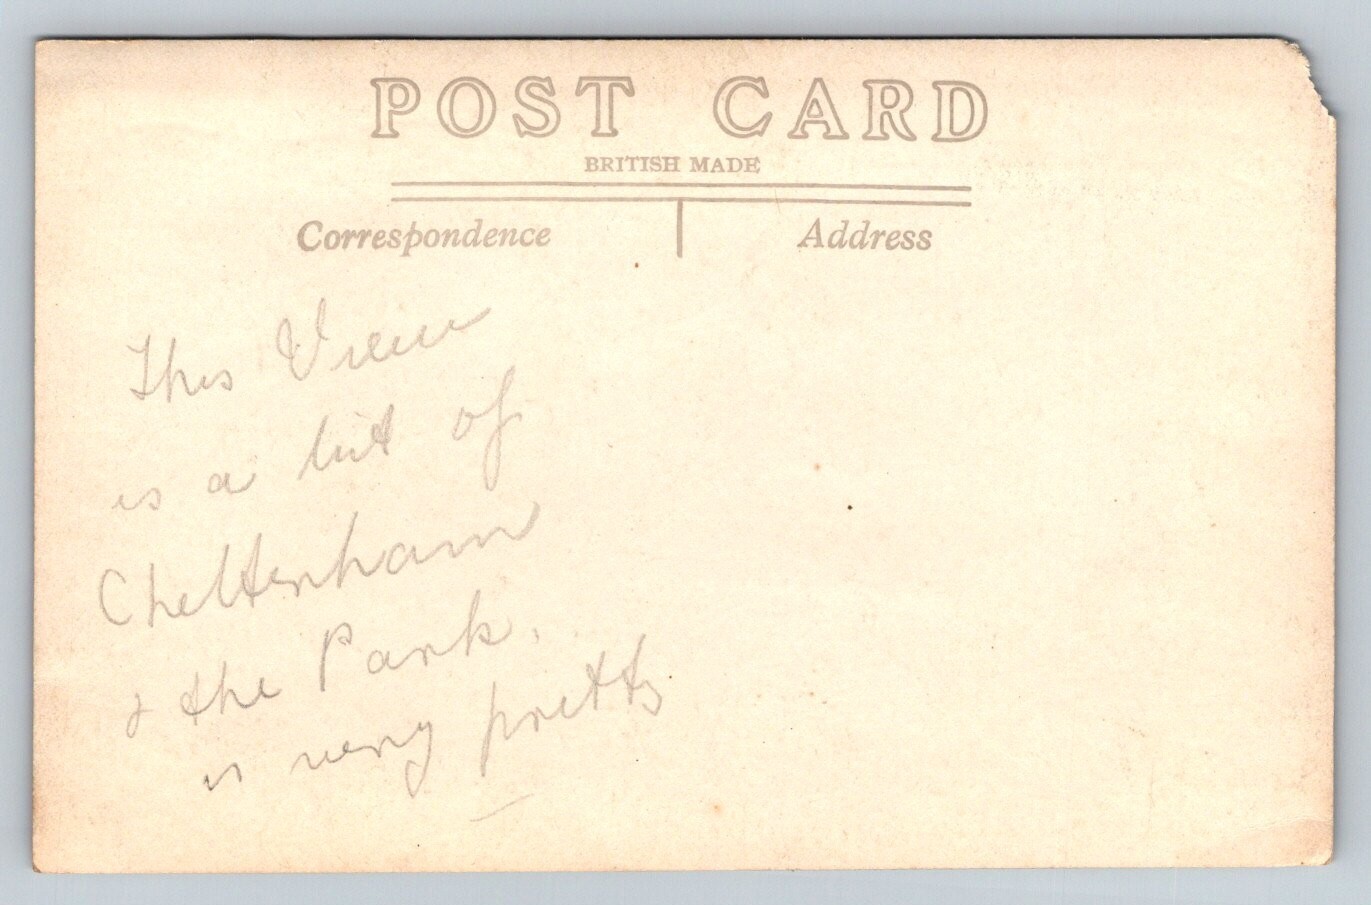 POST CARD
BRITISH MADE
Correspondence Address
This View
is a bit of
Cheltenham
& the Park.
is very pretty